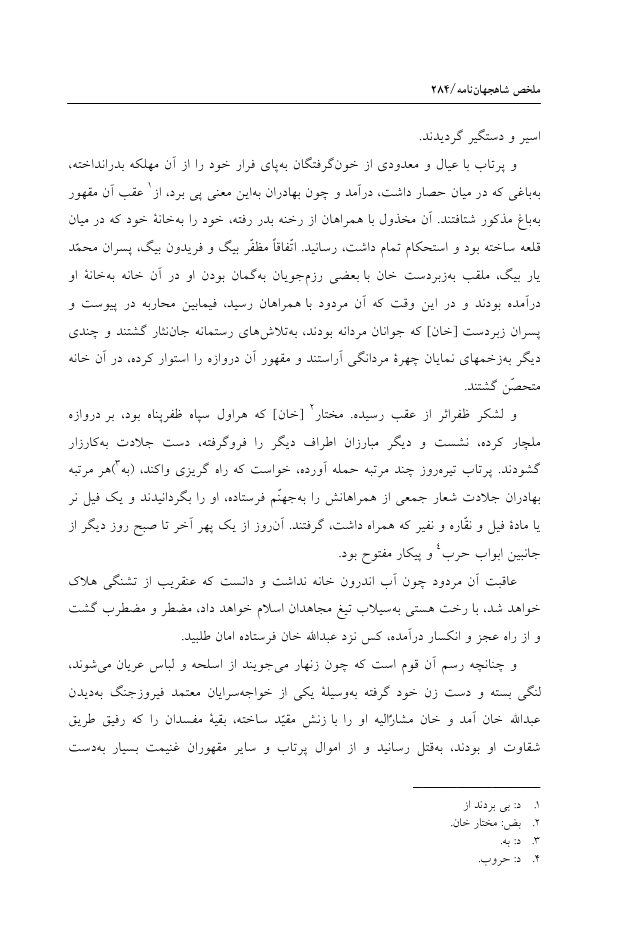 ملخص شاهجهان‌نامه/۲۸۴
اسیر و دستگیر گردیدند.
و پرتاب با عیال و معدودی از خون‌گرفتگان به‌پای فرار خود را از آن مهلکه بدرانداخته،
به‌باغی که در میان حصار داشت، درآمد و چون بهادران به‌این معنی پی برد، از۱ عقب آن مقهور
به‌باغ مذکور شتافتند. آن مخذول با همراهان از رخنه بدر رفته، خود را به‌خانۀ خود که در میان
قلعه ساخته بود و استحکام تمام داشت، رسانید. اتّفاقاً مظفّر بیگ و فریدون بیگ، پسران محمّد
یار بیگ، ملقب به‌زبردست خان با بعضی رزم‌جویان به‌گمان بودن او در آن خانه به‌خانۀ او
درآمده بودند و در این وقت که آن مردود با همراهان رسید، فیمابین محاربه در پیوست و
پسران زبردست [خان] که جوانان مردانه بودند، به‌تلاش‌های رستمانه جان‌نثار گشتند و چندی
دیگر به‌زخمهای نمایان چهرۀ مردانگی آراستند و مقهور آن دروازه را استوار کرده، در آن خانه
متحصّن گشتند.
و لشکر ظفراثر از عقب رسیده. مختار۲ [خان] که هراول سپاه ظفرپناه بود، بر دروازه
ملچار کرده، نشست و دیگر مبارزان اطراف دیگر را فروگرفته، دست جلادت به‌کارزار
گشودند. پرتاب تیره‌روز چند مرتبه حمله آورده، خواست که راه گریزی واکند، (به۳)هر مرتبه
بهادران جلادت شعار جمعی از همراهانش را به‌جهنّم فرستاده، او را بگردانیدند و یک فیل نر
یا مادۀ فیل و نقّاره و نفیر که همراه داشت، گرفتند. آن‌روز از یک پهر آخر تا صبح روز دیگر از
جانبین ابواب حرب۴ و پیکار مفتوح بود.
عاقبت آن مردود چون آب اندرون خانه نداشت و دانست که عنقریب از تشنگی هلاک
خواهد شد، با رخت هستی به‌سیلاب تیغ مجاهدان اسلام خواهد داد، مضطر و مضطرب گشت
و از راه عجز و انکسار درآمده، کس نزد عبدالله خان فرستاده امان طلبید.
و چنانچه رسم آن قوم است که چون زنهار می‌جویند از اسلحه و لباس عریان می‌شوند،
لنگی بسته و دست زن خود گرفته به‌وسیلۀ یکی از خواجه‌سرایان معتمد فیروزجنگ به‌دیدن
عبدالله خان آمد و خان مشارٌالیه او را با زنش مقیّد ساخته، بقیۀ مفسدان را که رفیق طریق
شقاوت او بودند، به‌قتل رسانید و از اموال پرتاب و سایر مقهوران غنیمت بسیار به‌دست
۱. د: بی بردند از
۲. بض: مختار خان.
۳. د: به.
۴. د: حروب.